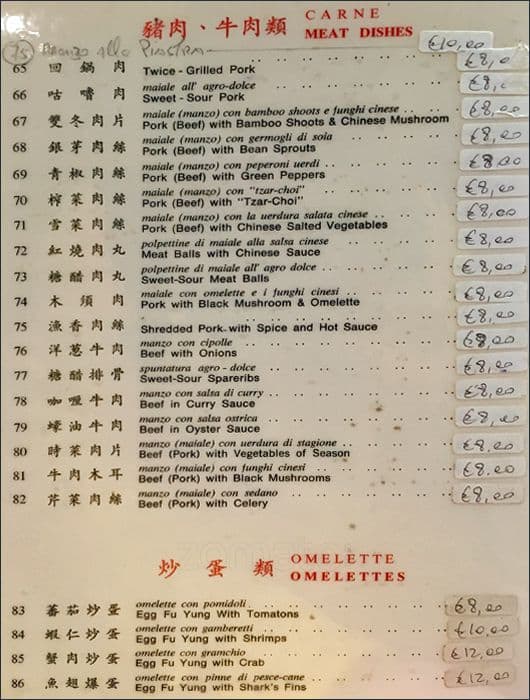 豬肉、牛肉類 CARNE
MEAT DISHES
75 manzo alla Piastra €10,00
65 回鍋肉 Twice - Grilled Pork €8,0
66 咕嚕肉 maiale all' agro-dolce
Sweet - Sour Pork €8,0
67 雙冬肉片 maiale (manzo) con bamboo shoots e funghi cinese
Pork (Beef) with Bamboo Shoots & Chinese Mushroom €8,00
68 銀芽肉絲 maiale (manzo) con germogli di soia
Pork (Beef) with Bean Sprouts €8,00
69 青椒肉絲 maiale (manzo) con peperoni uerdi
Pork (Beef) with Green Peppers €8,00
70 榨菜肉絲 maiale (manzo) con "tzar-choi"
Pork (Beef) with "Tzar-Choi" €8,00
71 雪菜肉絲 maiale (manzo) con la uerdura salata cinese
Pork (Beef) with Chinese Salted Vegetables €8,00
72 紅燒肉丸 polpettine di maiale alla salsa cinese
Meat Balls with Chinese Sauce €8,00
73 糖醋肉丸 polpettine di maiale all' agro dolce
Sweet-Sour Meat Balls €8,00
74 木須肉 maiale con omelette e i funghi cinesi
Pork with Black Mushroom & Omelette €8,00
75 漁香肉絲 Shredded Pork with Spice and Hot Sauce €8,00
76 洋葱牛肉 manzo con cipolle
Beef with Onions €8,00
77 糖醋排骨 spuntatura agro - dolce
Sweet-Sour Spareribs €8,00
78 咖喱牛肉 manzo con salsa di curry
Beef in Curry Sauce €8,00
79 蠔油牛肉 manzo con salsa ostrica
Beef in Oyster Sauce €8,00
80 時菜肉片 manzo (maiale) con uerdura di stagione
Beef (Pork) with Vegetables of Season €8,00
81 牛肉木耳 manzo (maiale) con funghi cinesi
Beef (Pork) with Black Mushrooms €8,00
82 芹菜肉絲 manzo (maiale) con sedano
Beef (Pork) with Celery €8,00
炒蛋類 OMELETTE
OMELETTES
83 蕃茄炒蛋 omelette con pomidoli
Egg Fu Yung With Tomatons €8,00
84 蝦仁炒蛋 omelette con gamberetti
Egg Fu Yung with Shrimps €10,00
85 蟹肉炒蛋 omelette con gramchio
Egg Fu Yung with Crab €12,00
86 魚翅爆蛋 omelette con pinne di pesce-cane
Egg Fu Yung with Shark's Fins €12,00